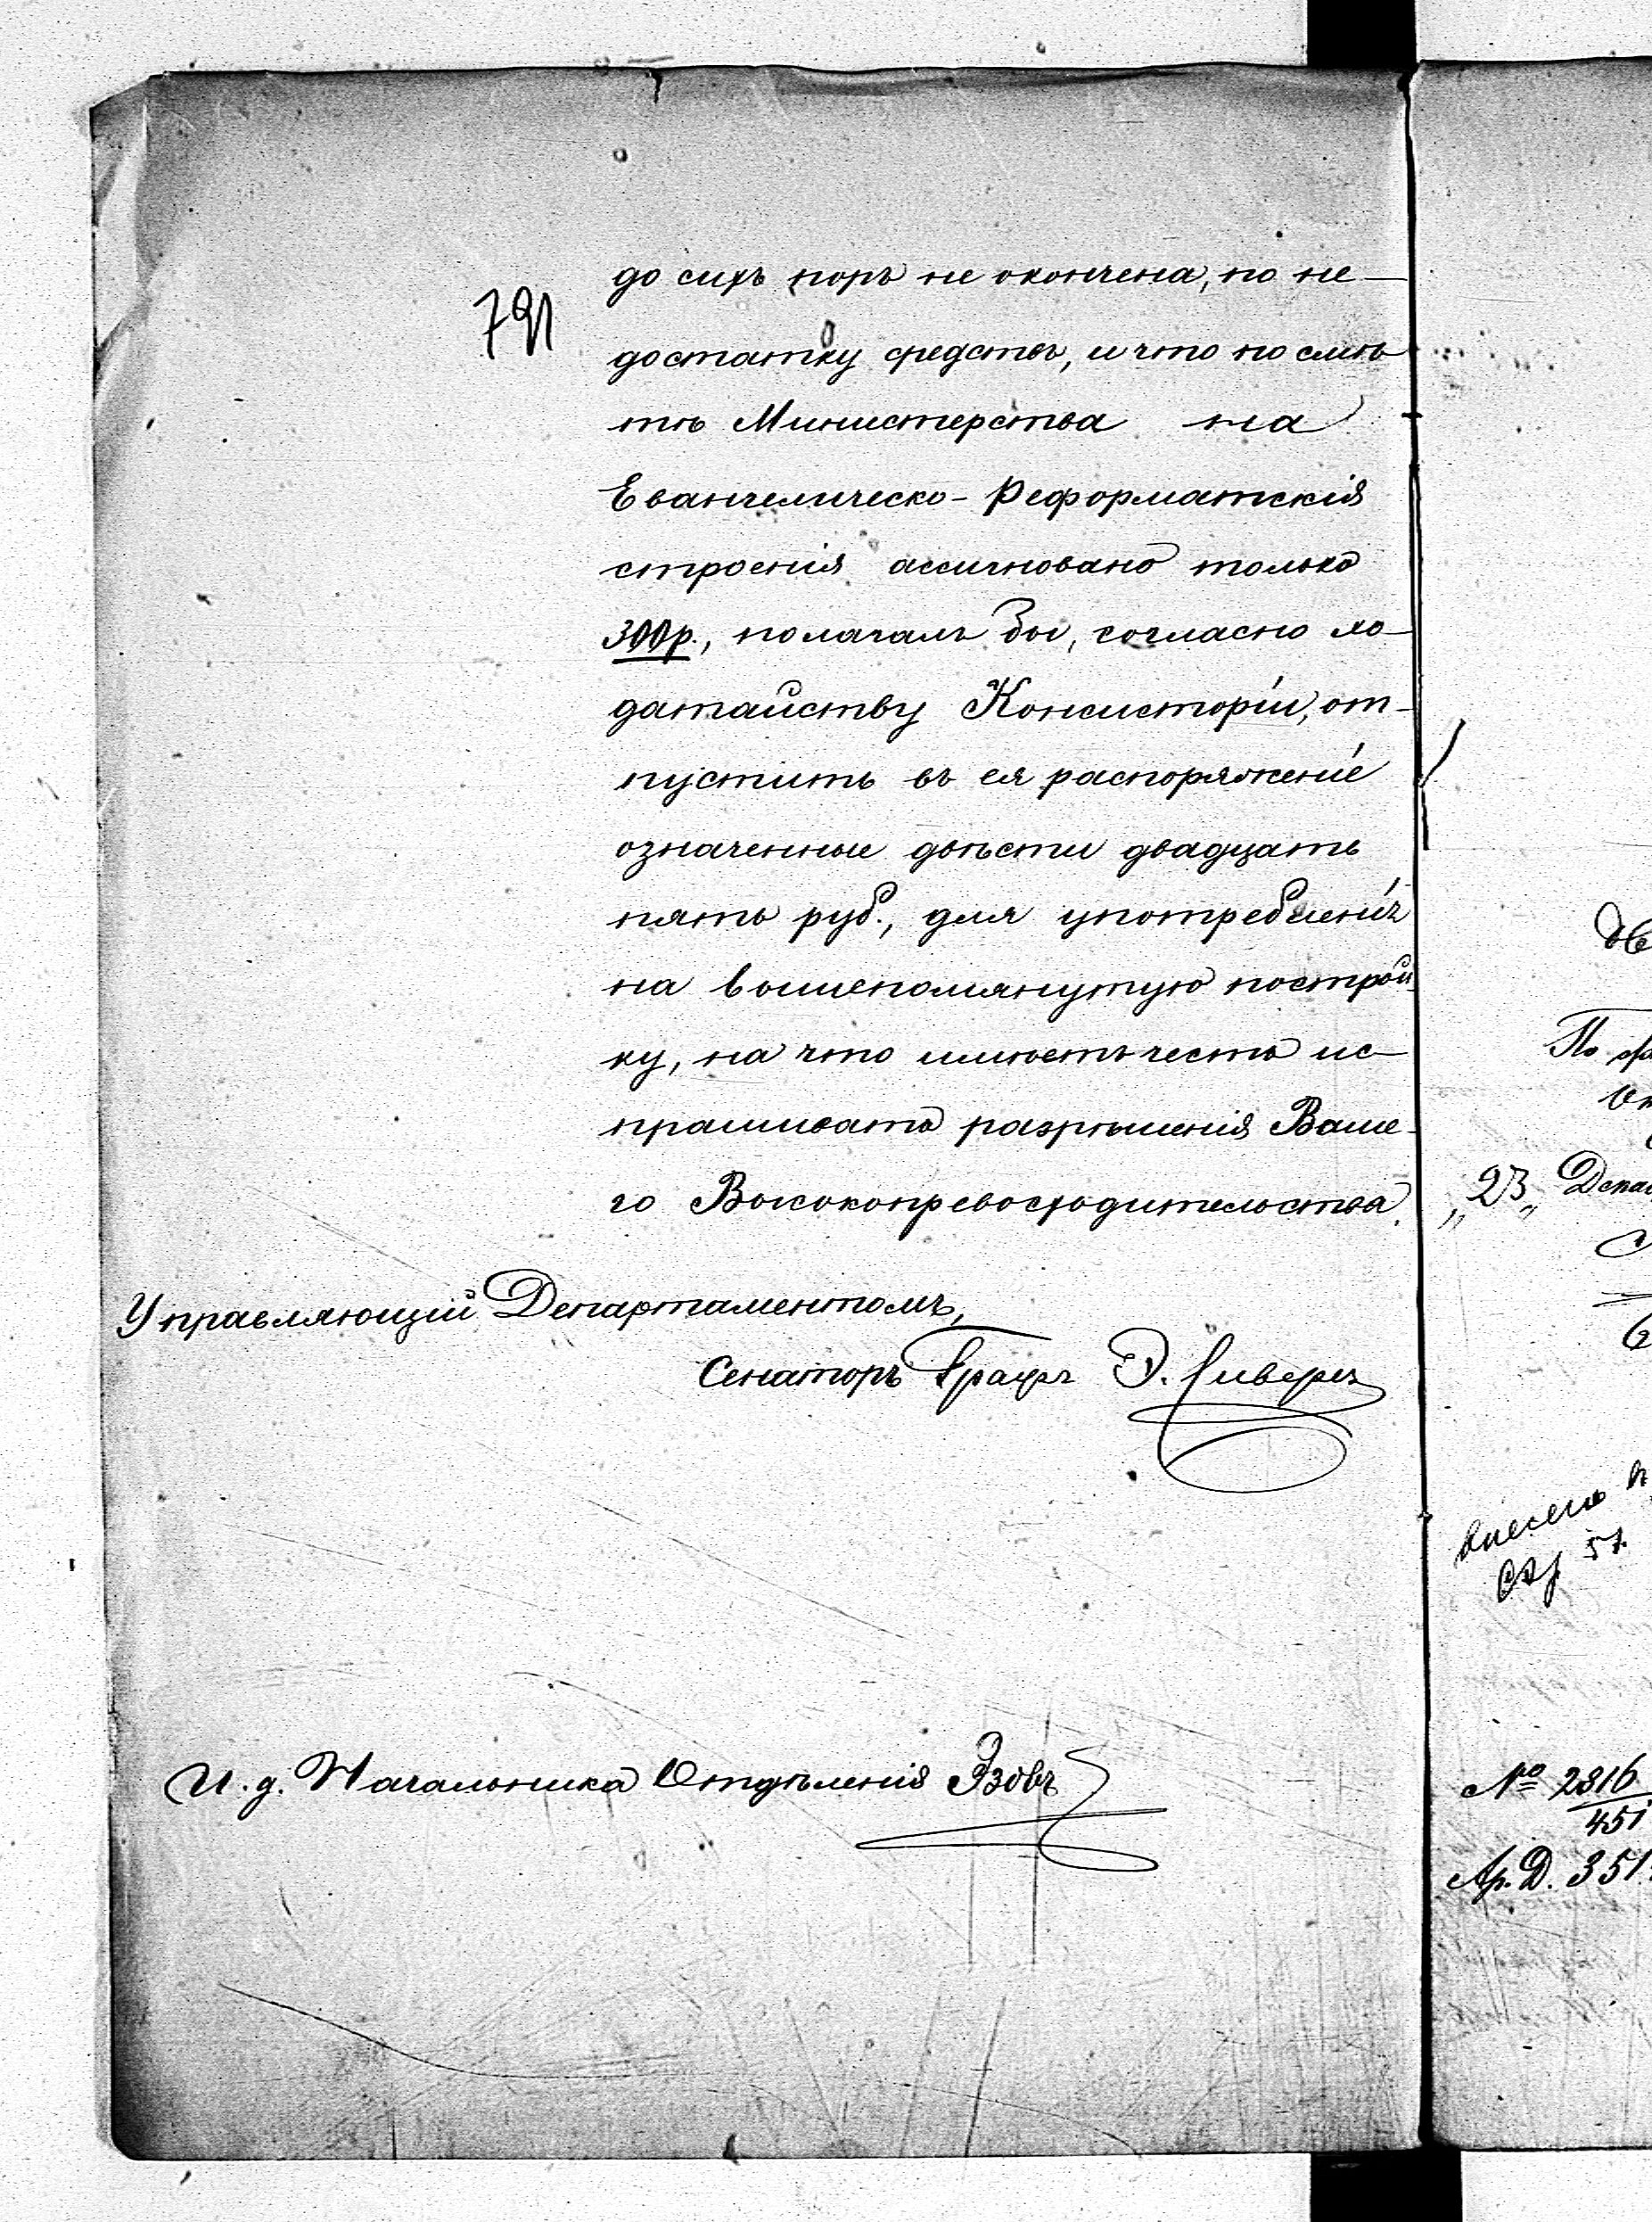 до сихъ поръ не окончена, по не-
791
достатку средствъ, и что по смѣ
тѣ Министерства на
Евангелическо-Реформатскія
строенія ассигновано только
300 р., полагалъ бы, согласно хо-
датайству Консисторіи, от-
пустить въ ея распоряженіе
означенные двѣсти двадцать
пять руб., для употребленія
на вышепомянутую построй-
ку, на что имѣетъ честь ис-
прашивать разрѣшенія Ваше-
го Высокопревосходительства.
Управляющій Департаментомъ,
Сенаторъ Графъ Э. Сиверсъ
И. д. Начальника Отдѣленія Эзовъ
По
„23„
Стр. 57.
№ 2816
451
Ар. Д. 351.